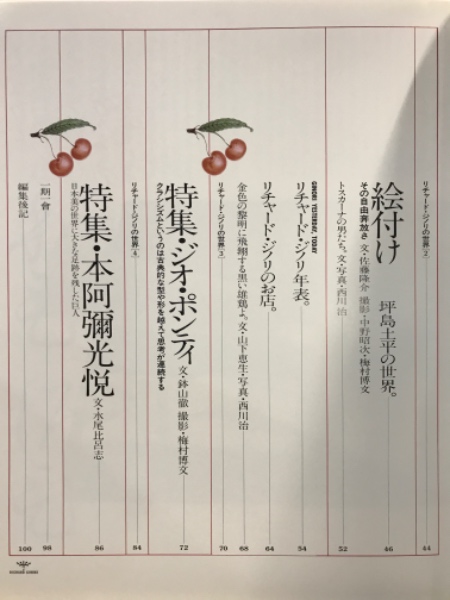 リチャード・ジノリの世界〔2〕
44
絵付け 坪島土平の世界。
その自由奔放さ 文・佐藤隆介 撮影・中野昭次・梅村博文
46
トスカーナの男たち。文・写真・西川 治
52
GINORI YESTERDAY, TODAY
リチャード・ジノリ年表。
54
リチャード・ジノリのお店。
64
金色の黎明に飛翔する黒い雄鶏よ。文・山下恵生・写真・西川治
68
リチャード・ジノリの世界〔3〕
70
特集・ジオ・ポンティ 文・鉢山徹 撮影・梅村博文
クラシシズムというのは古典的な型や形を越えて思考が連続する
72
リチャード・ジノリの世界〔4〕
84
特集・本阿彌光悦 文・水尾比呂志
日本美の世界に大きな足跡を残した巨人
86
一期一會
98
編集後記
100